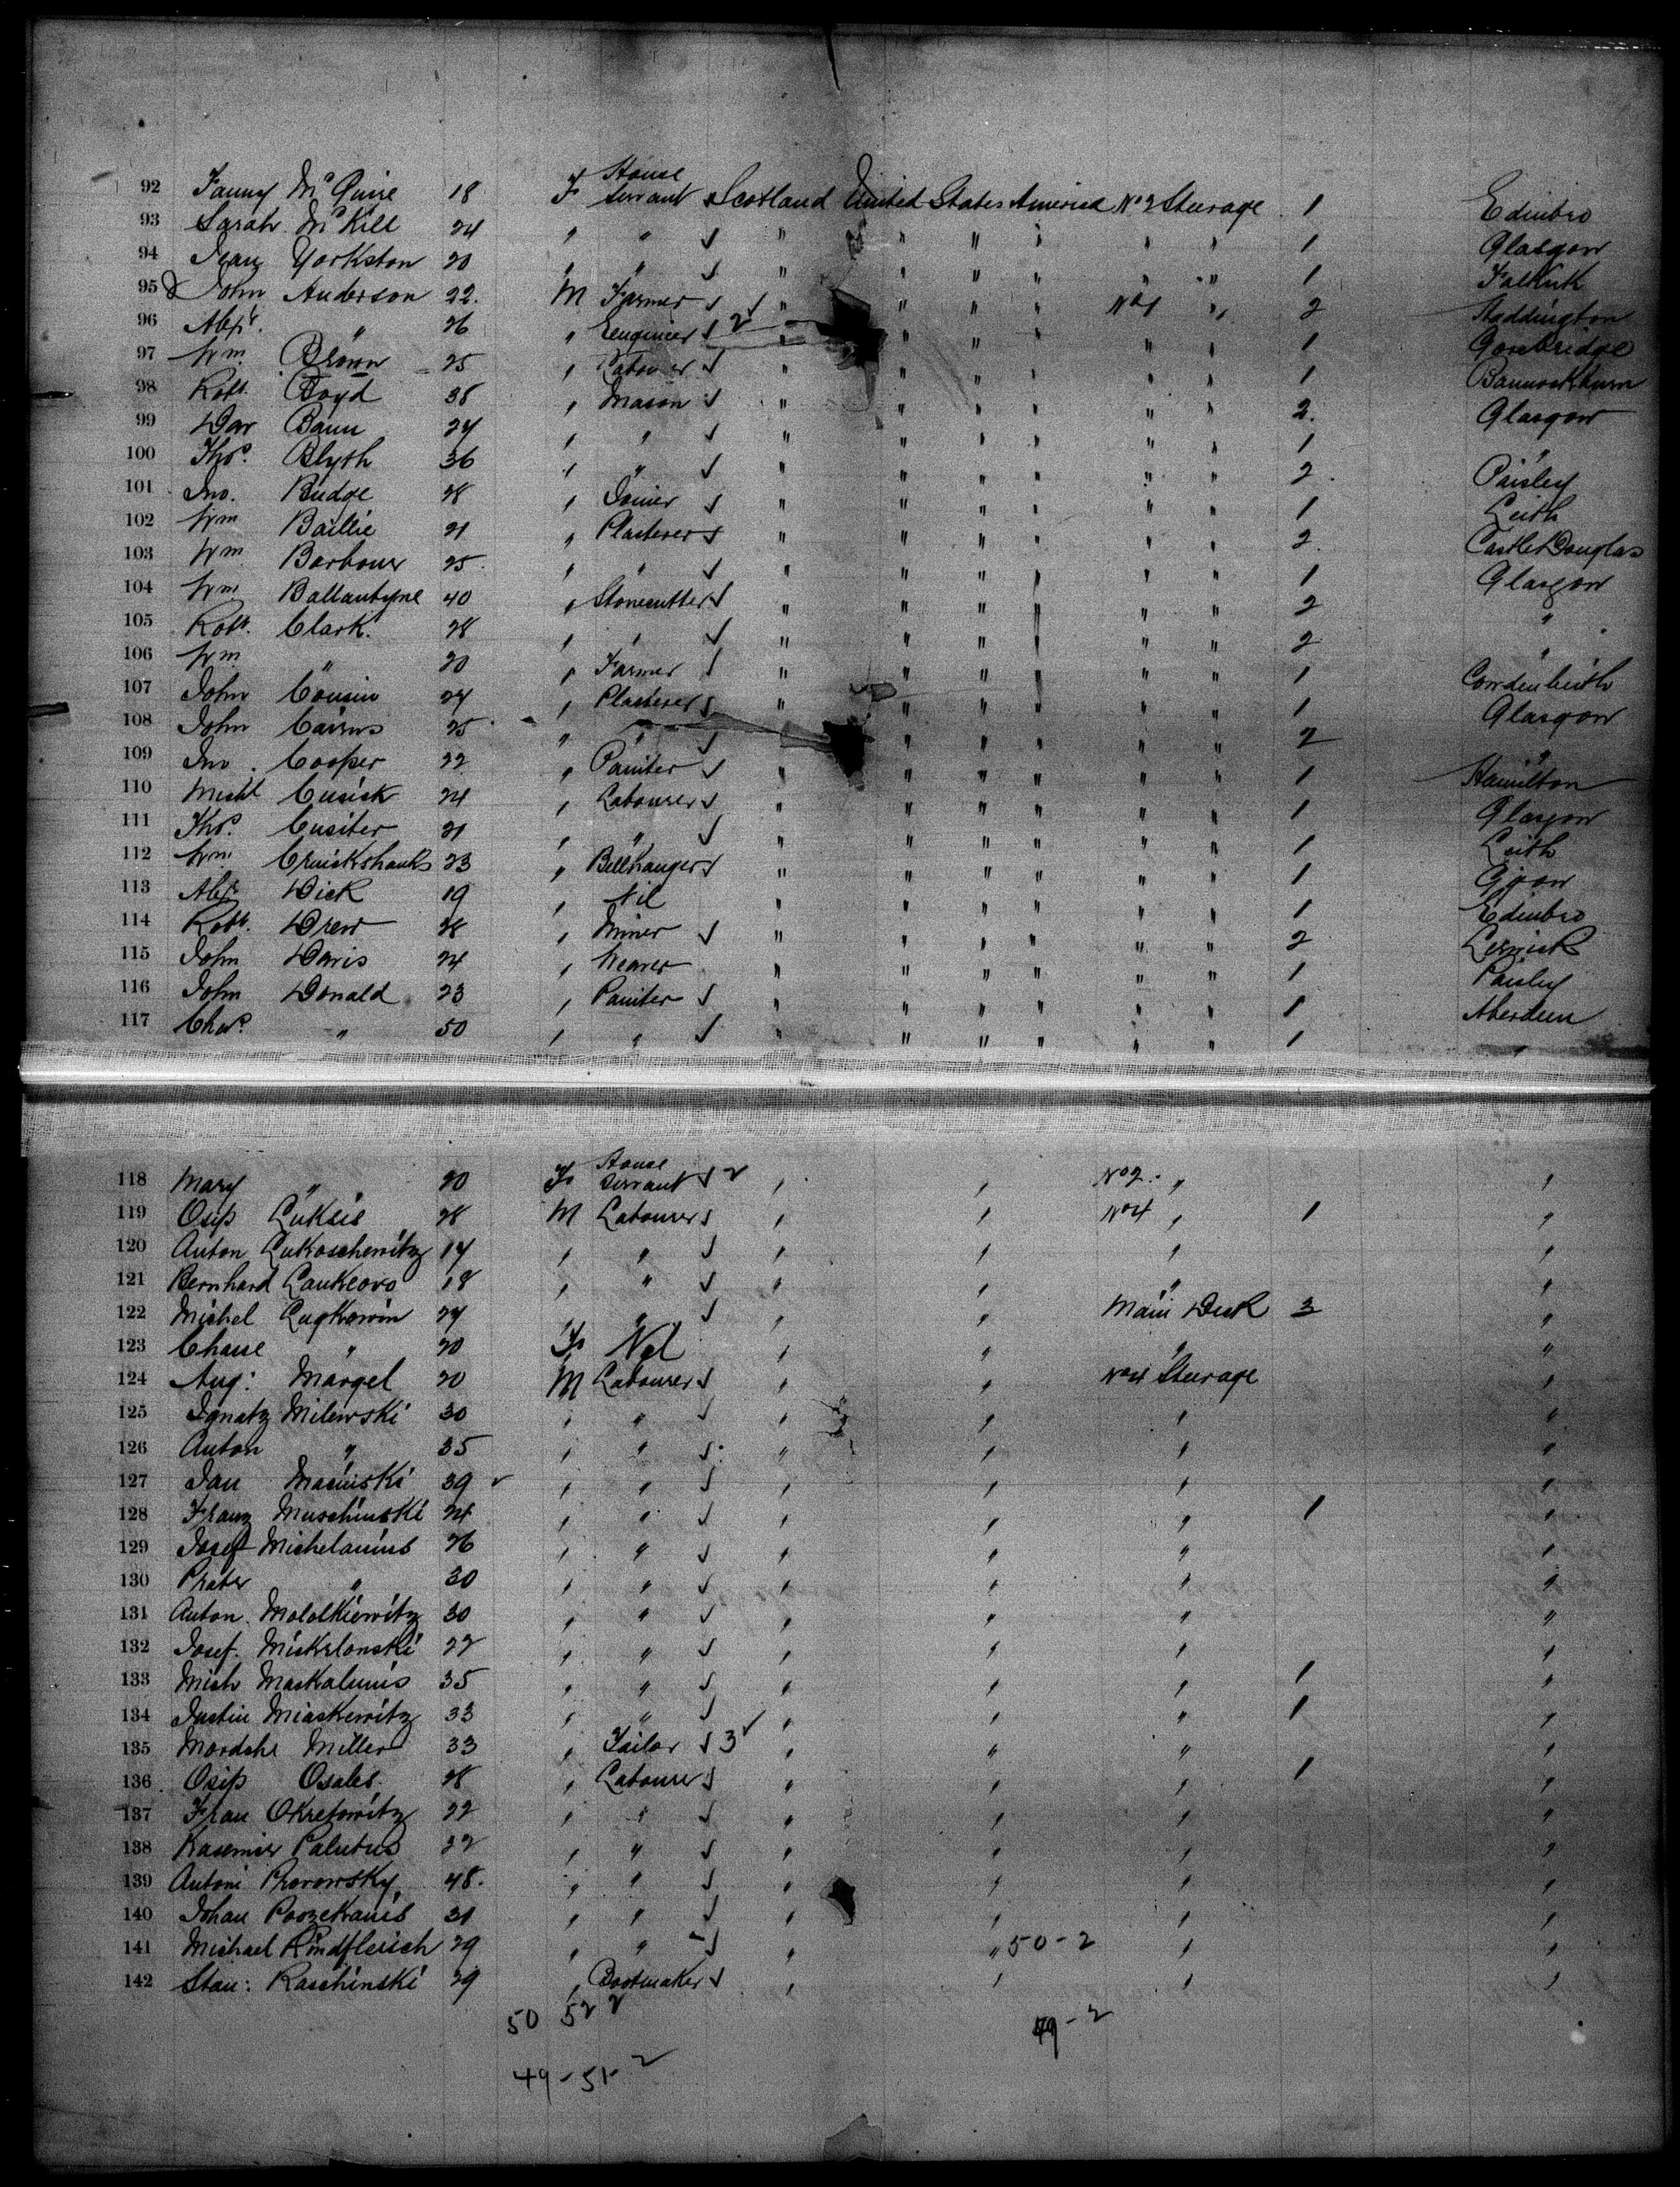 92 Fanny McGuire 18 F House Servant Scotland United States America No 2 Steerage 1 Edinbro
93 Sarah McKill 24 " " " " " " " " 1 Glasgow
94 Jean Yorkston 20 " " " " " " " " 1 Falkirk
95 John Anderson 22. M Farmer " " " " No 1 " 2 Haddington
96 Alexr. " 26 " Engineer 2 " " " " " " 1 Gorebridge
97 Wm. Brown 25 " Labourer " " " " " " 1 Bannockburn
98 Robt. Boyd 38 " Mason " " " " " " 2. Glasgow
99 Dav Bann 24 " " " " " " " " 1 "
100 Thos. Blyth 36 " " " " " " " " 2. Paisley
101 Jno. Budge 28 " Joiner " " " " " " 1 Leith
102 Wm Baillie 21 " Plasterer " " " " " " 2. Castle Douglas
103 Wm Barbour 25. " " " " " " " " 1 Glasgow
104 Wm Ballantyne 40 " Stonecutter " " " " " " 2 "
105 Robt. Clark. 28 " " " " " " " " 2 "
106 Wm " 20 " Farmer " " " " " " 1 Cowdenbeith
107 John Cousin 24 " Plasterer " " " " " " 1 Glasgow
108 John Cairns 25 " " " " " " " 2 "
109 Jno. Cooper 22 " Painter " " " " " " 1 Hamilton
110 Michl Cusick 24 " Labourer " " " " " " 1 Glasgow
111 Thos. Cusiter 21 " " " " " " " " 1 Leith
112 Wm Cruickshanks 23 " Bellhanger " " " " " " 1 Ggow
113 Alexr Dick 19 " Nil " " " " " " 1 Edinbro
114 Robt. Drew 28 " Miner " " " " " " 2 Lerwick
115 John Davis 24 " Weaver " " " " " " 1 Paisley
116 John Donald 23 " Painter " " " " " " 1 Aberdeen
117 Chas. " 50 " " " " " " " " 1 "
118 Mary " 20 F House Servant 2 " " No 2. " "
119 Osip Luksis 28 M Labourer " " No 4 " 1 "
120 Anton Lukoschewitz 17 " " " " " "
121 Bernhard 18 " " " " " "
122 Michel Lugkowin 24 " " " " Main Deck 3 "
123 Chasse " 20 F Nil " " " "
124 Aug: Margel 20 M Labourer " " No 4 Steerage "
125 Ignatz Milewski 30 " " " " " "
126 Anton " 35 " " " " " "
127 Jan Masinski 39 " " " " " "
128 Franz Muschinski 24 " " " " " 1 "
129 Josef Michelanius 26 " " " " " "
130 Prater " 30 " " " " " "
131 Anton. Mololkiewitz 30 " " " " " "
132 Josef. Miskelonski 22 " " " " " "
133 Mich Maskalunis 35 " " " " " 1 "
134 Justin Miaskewitz 33 " " " " " 1 "
135 Mordche Miller 33 " Tailor 3 " " " "
136 Osip Osales. 28 " Labourer " " " 1 "
137 Fran Okretowitz 22 " " " " " "
138 Kasemir Palutus 32 " " " " " "
139 Antoni Prorowsky 48. " " " " " "
140 Johan Poozekanis 31 " " " " " "
141 Michael Rindfleisch 29 " " " " 50-2 " "
142 Stan: Raschinski 29 " Bootmaker " " " "
50 52 2 49-2
49-51-2